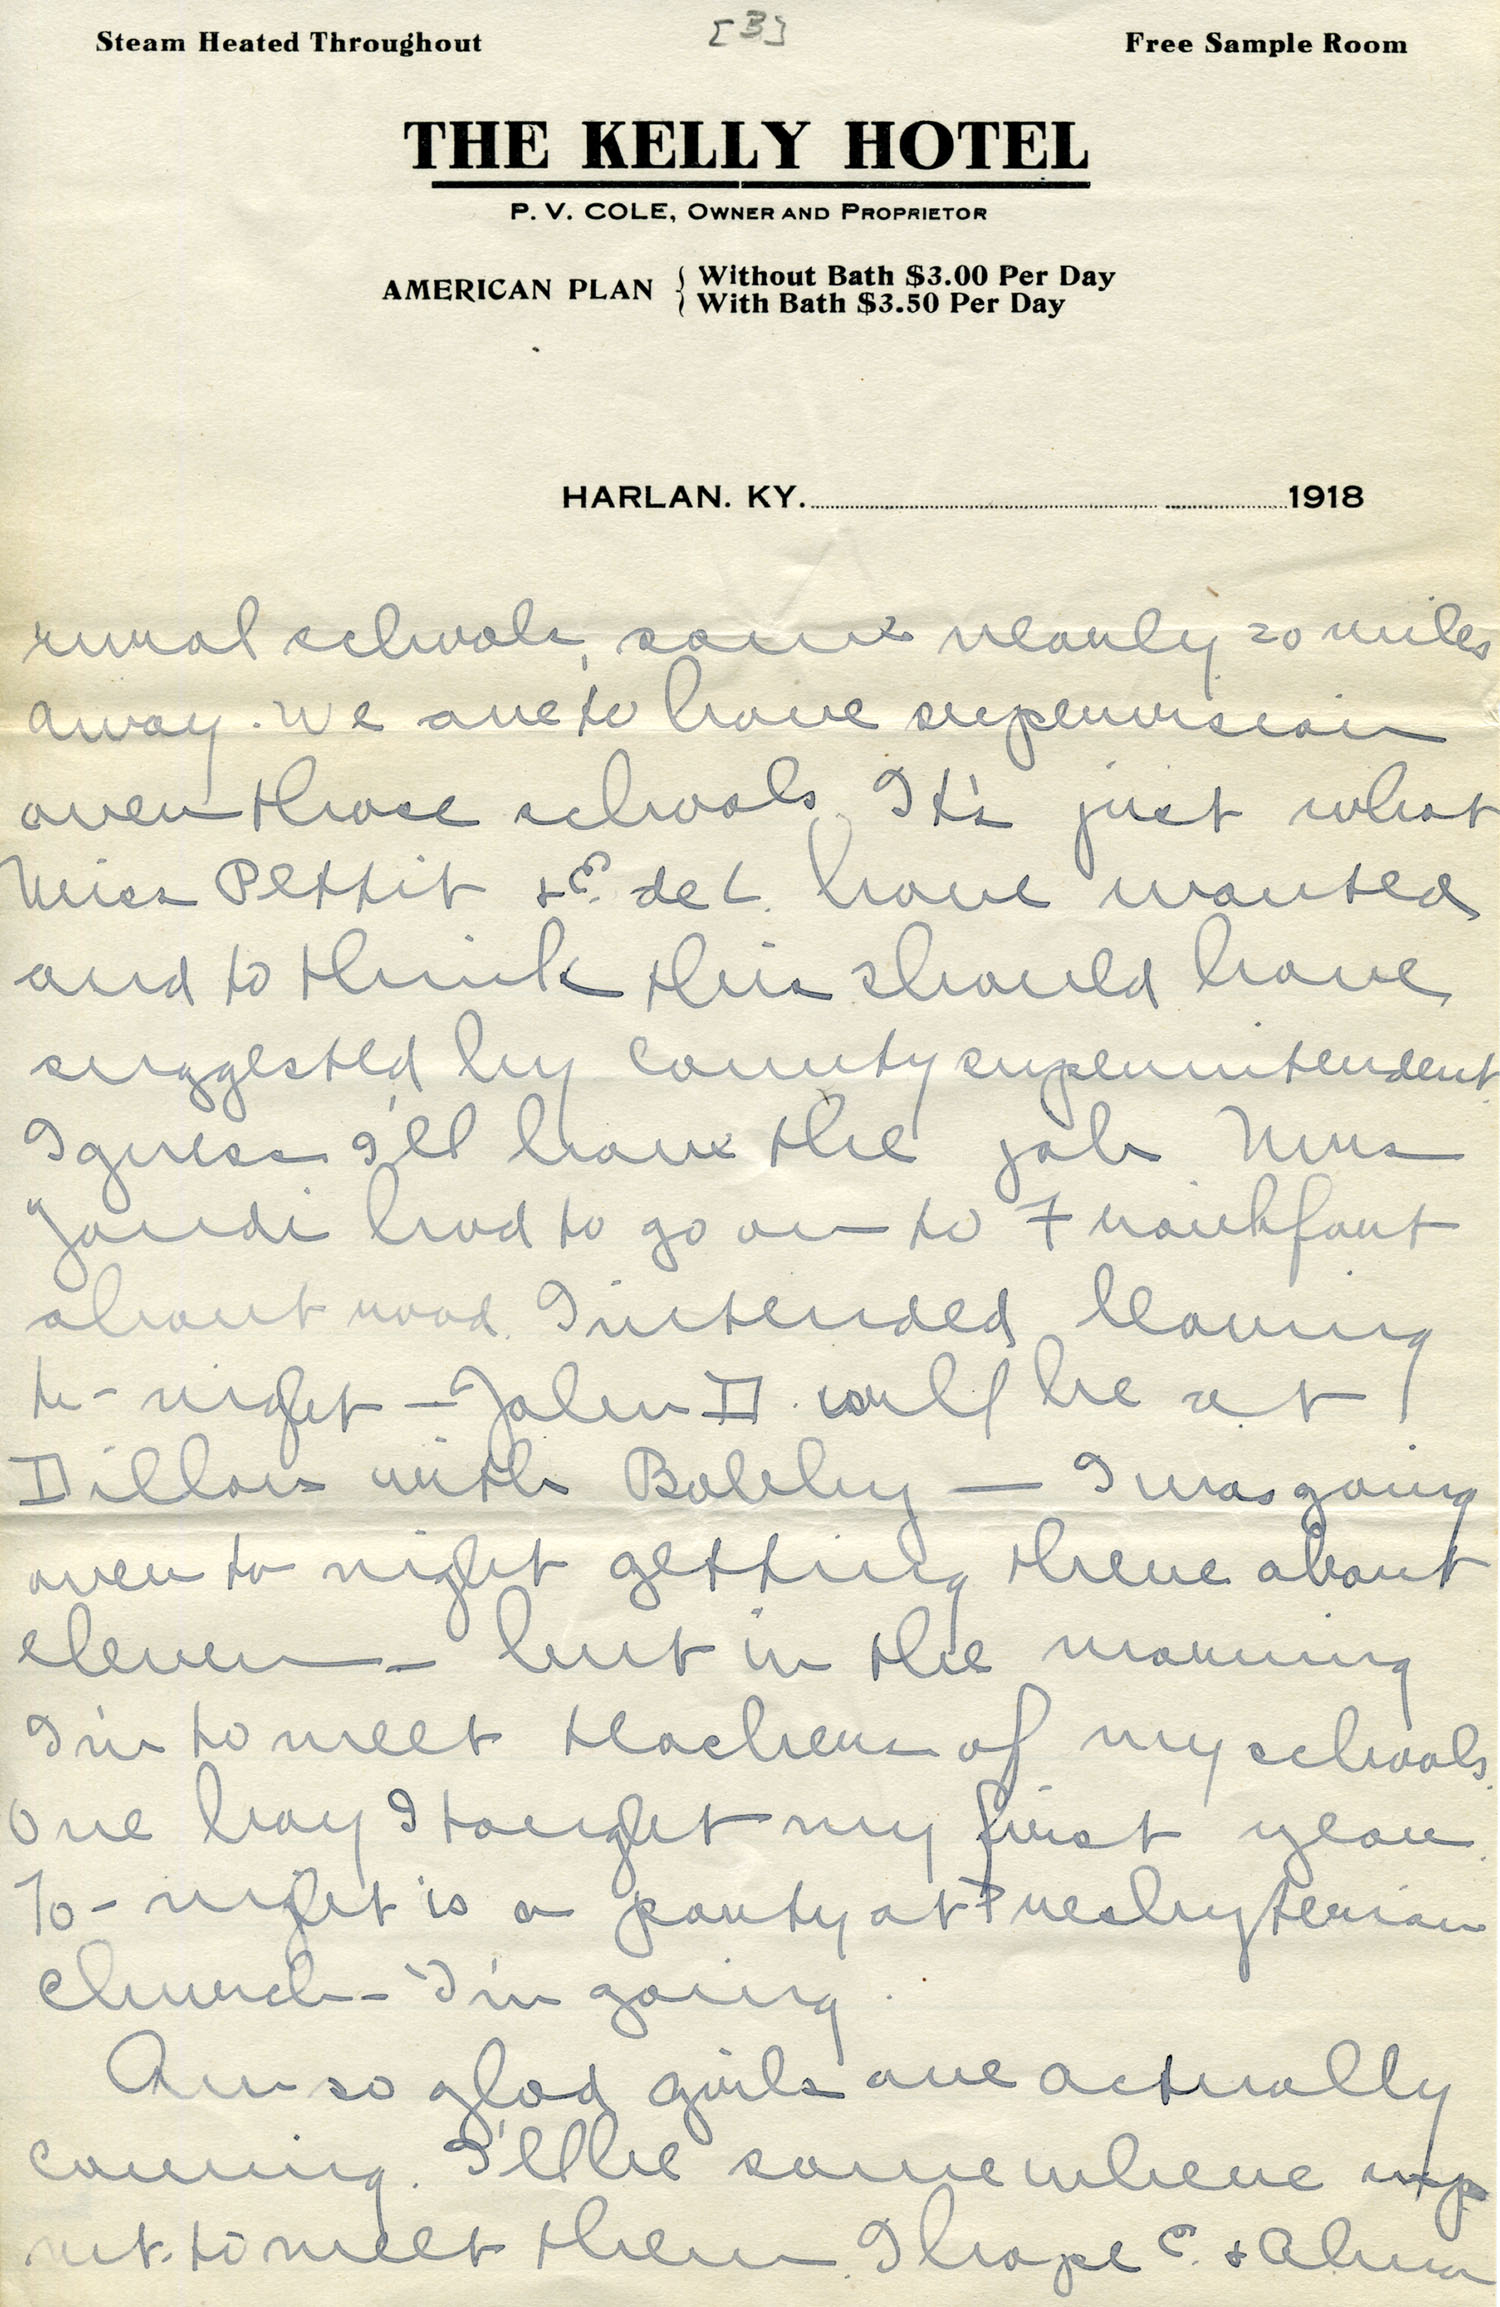 [3]
Steam Heated Throughout
Free Sample Room
THE KELLY HOTEL
P. V. COLE, OWNER AND PROPRIETOR
AMERICAN PLAN { Without Bath $3.00 Per Day
With Bath $3.50 Per Day
HARLAN. KY. 1918
rural schools, some nearly 20 miles
away. We are to have supervision
over those schools. It's just what
Miss Pettit + E. de L. have wanted
and to think this should have
suggested by county superintendent.
I guess I'll have the job. Mrs
Zande had to go on to Frankfort
about noon. I intended leaving
to-night - John D. will be at
Dillon with Bobby — I was going
over to night getting there about
eleven - but in the morning
I'm to meet teachers of my schools.
One boy I taught my first year.
To-night is a party at Presbyterian
church - I'm going.
Am so glad girls are actually
coming. I'll be somewhere up
mt. to meet them. I hope E. + Alma